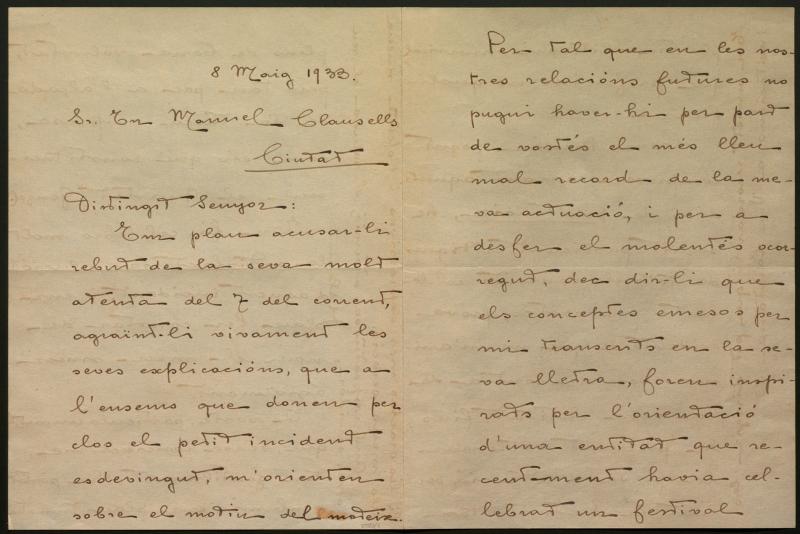 8 Maig 1933.
Sr. En Manuel Clausells
Ciutat
Distingit Senyor:
Em plau acusar-li
rebut de la seva molt
atenta del 7 del corrent,
agraïnt-li vivament les
seves explicacións, que a
l'ensems que donen per
clos el petit incident
esdevingut, m'orienten
sobre el motiu del mateix.
Per tal que en les nos-
tres relacións futures no
pugui haver-hi per part
de vostés el més lleu
mal record de la me-
va actuació, i per a
desfer el malentés ocor-
regut, dec dir-li que
els conceptes emesos per
mi transcrits en la se-
va lletra, foren inspi-
rats per l'orientació
d'una entitat que re-
centment havia cel-
lebrat un festival